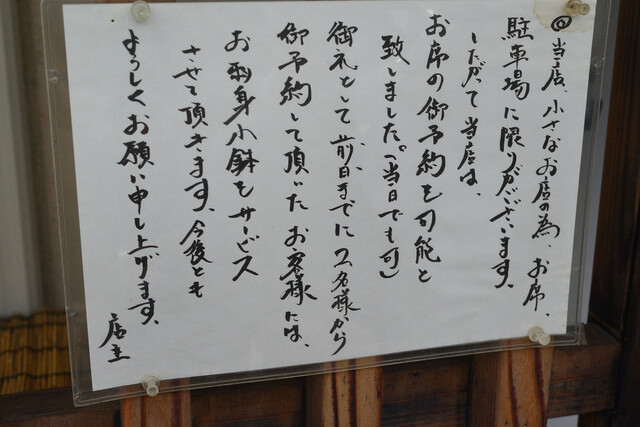 ◎当店、小さなお店の為、お席、
駐車場に限りがございます。
したがって当店は、
お席の御予約を可能と
致しました。(当日でも可)
御礼として前日までに2名様から
御予約して頂いたお客様には、
お刺身小鉢をサービス
させて頂きます、今後とも
よろしくお願い申し上げます、
店主